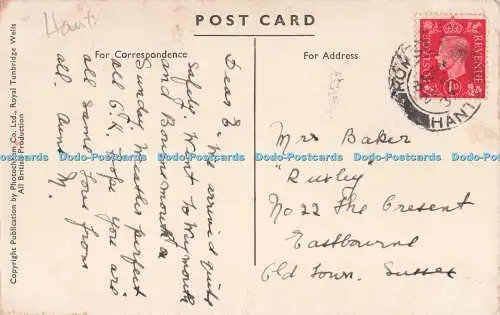 Hants
POST CARD
For Correspondence
For Address
Dear E, We arrived quite
safely. Went to Weymouth
and Bournemouth on
Sunday. Weather perfect
all O.K. Hope you are
all same. Love from
all. Aunt M.
Mrs Baker
"Ruxley"
No 22 The Cresent
Eastbourne
Old Town. Sussex
POSTAGE
REVENUE
1D
HANTS
Copyright Publication by Photochrom Co. Ltd., Royal Tunbridge Wells
All British Production
Dodo-Postcards Dodo-Postcards Dodo-Postcards Dodo-Postcards Dodo-Postcards Dodo-Postcards